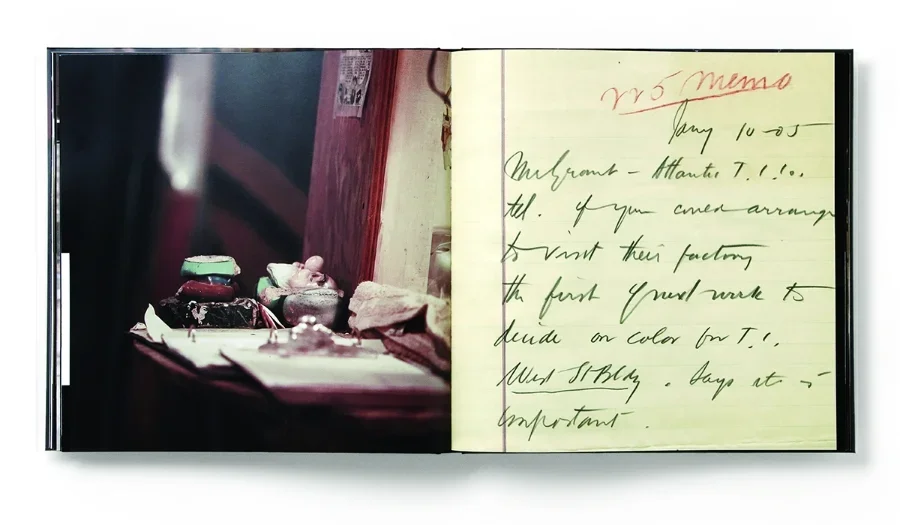 Memo
Jany 10-05
Mr Grant - Atlantic T.
tel. if you could arrange
to visit their factory
the first of next week to
decide on color for T.
West St Bldg. Says it is
important.